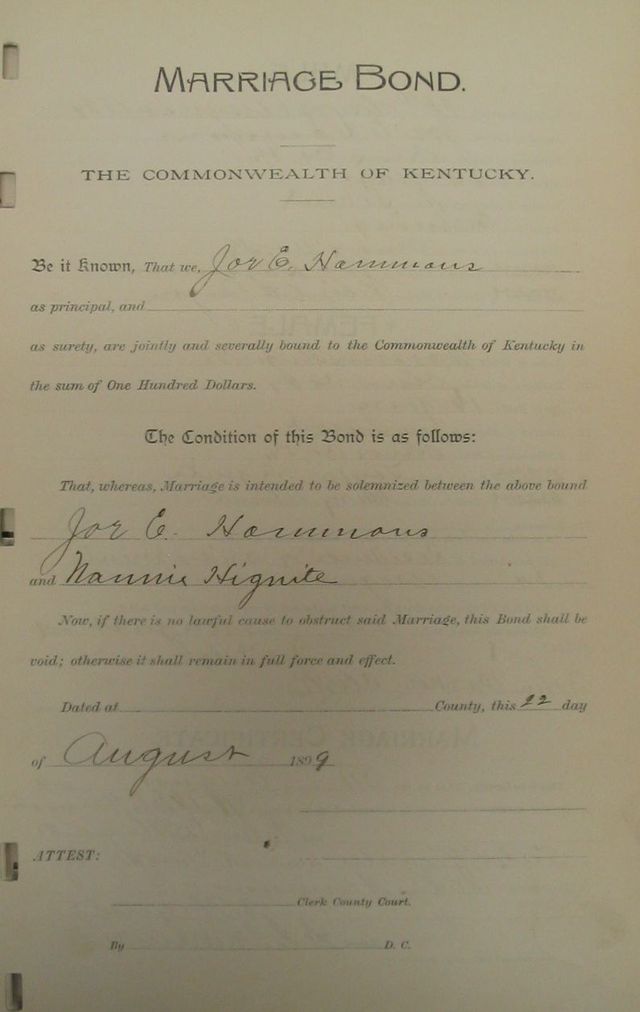 MARRIAGE BOND.
THE COMMONWEALTH OF KENTUCKY.
Be it Known, That we, Joe E. Hammons
as principal, and
as surety, are jointly and severally bound to the Commonwealth of Kentucky in
the sum of One Hundred Dollars.
The Condition of this Bond is as follows:
That, whereas, Marriage is intended to be solemnized between the above bound
Joe E. Hammons
and Nannie Hignite
Now, if there is no lawful cause to obstruct said Marriage, this Bond shall be
void; otherwise it shall remain in full force and effect.
Dated at County, this 22 day
of August 1899
ATTEST:
Clerk County Court.
By D. C.